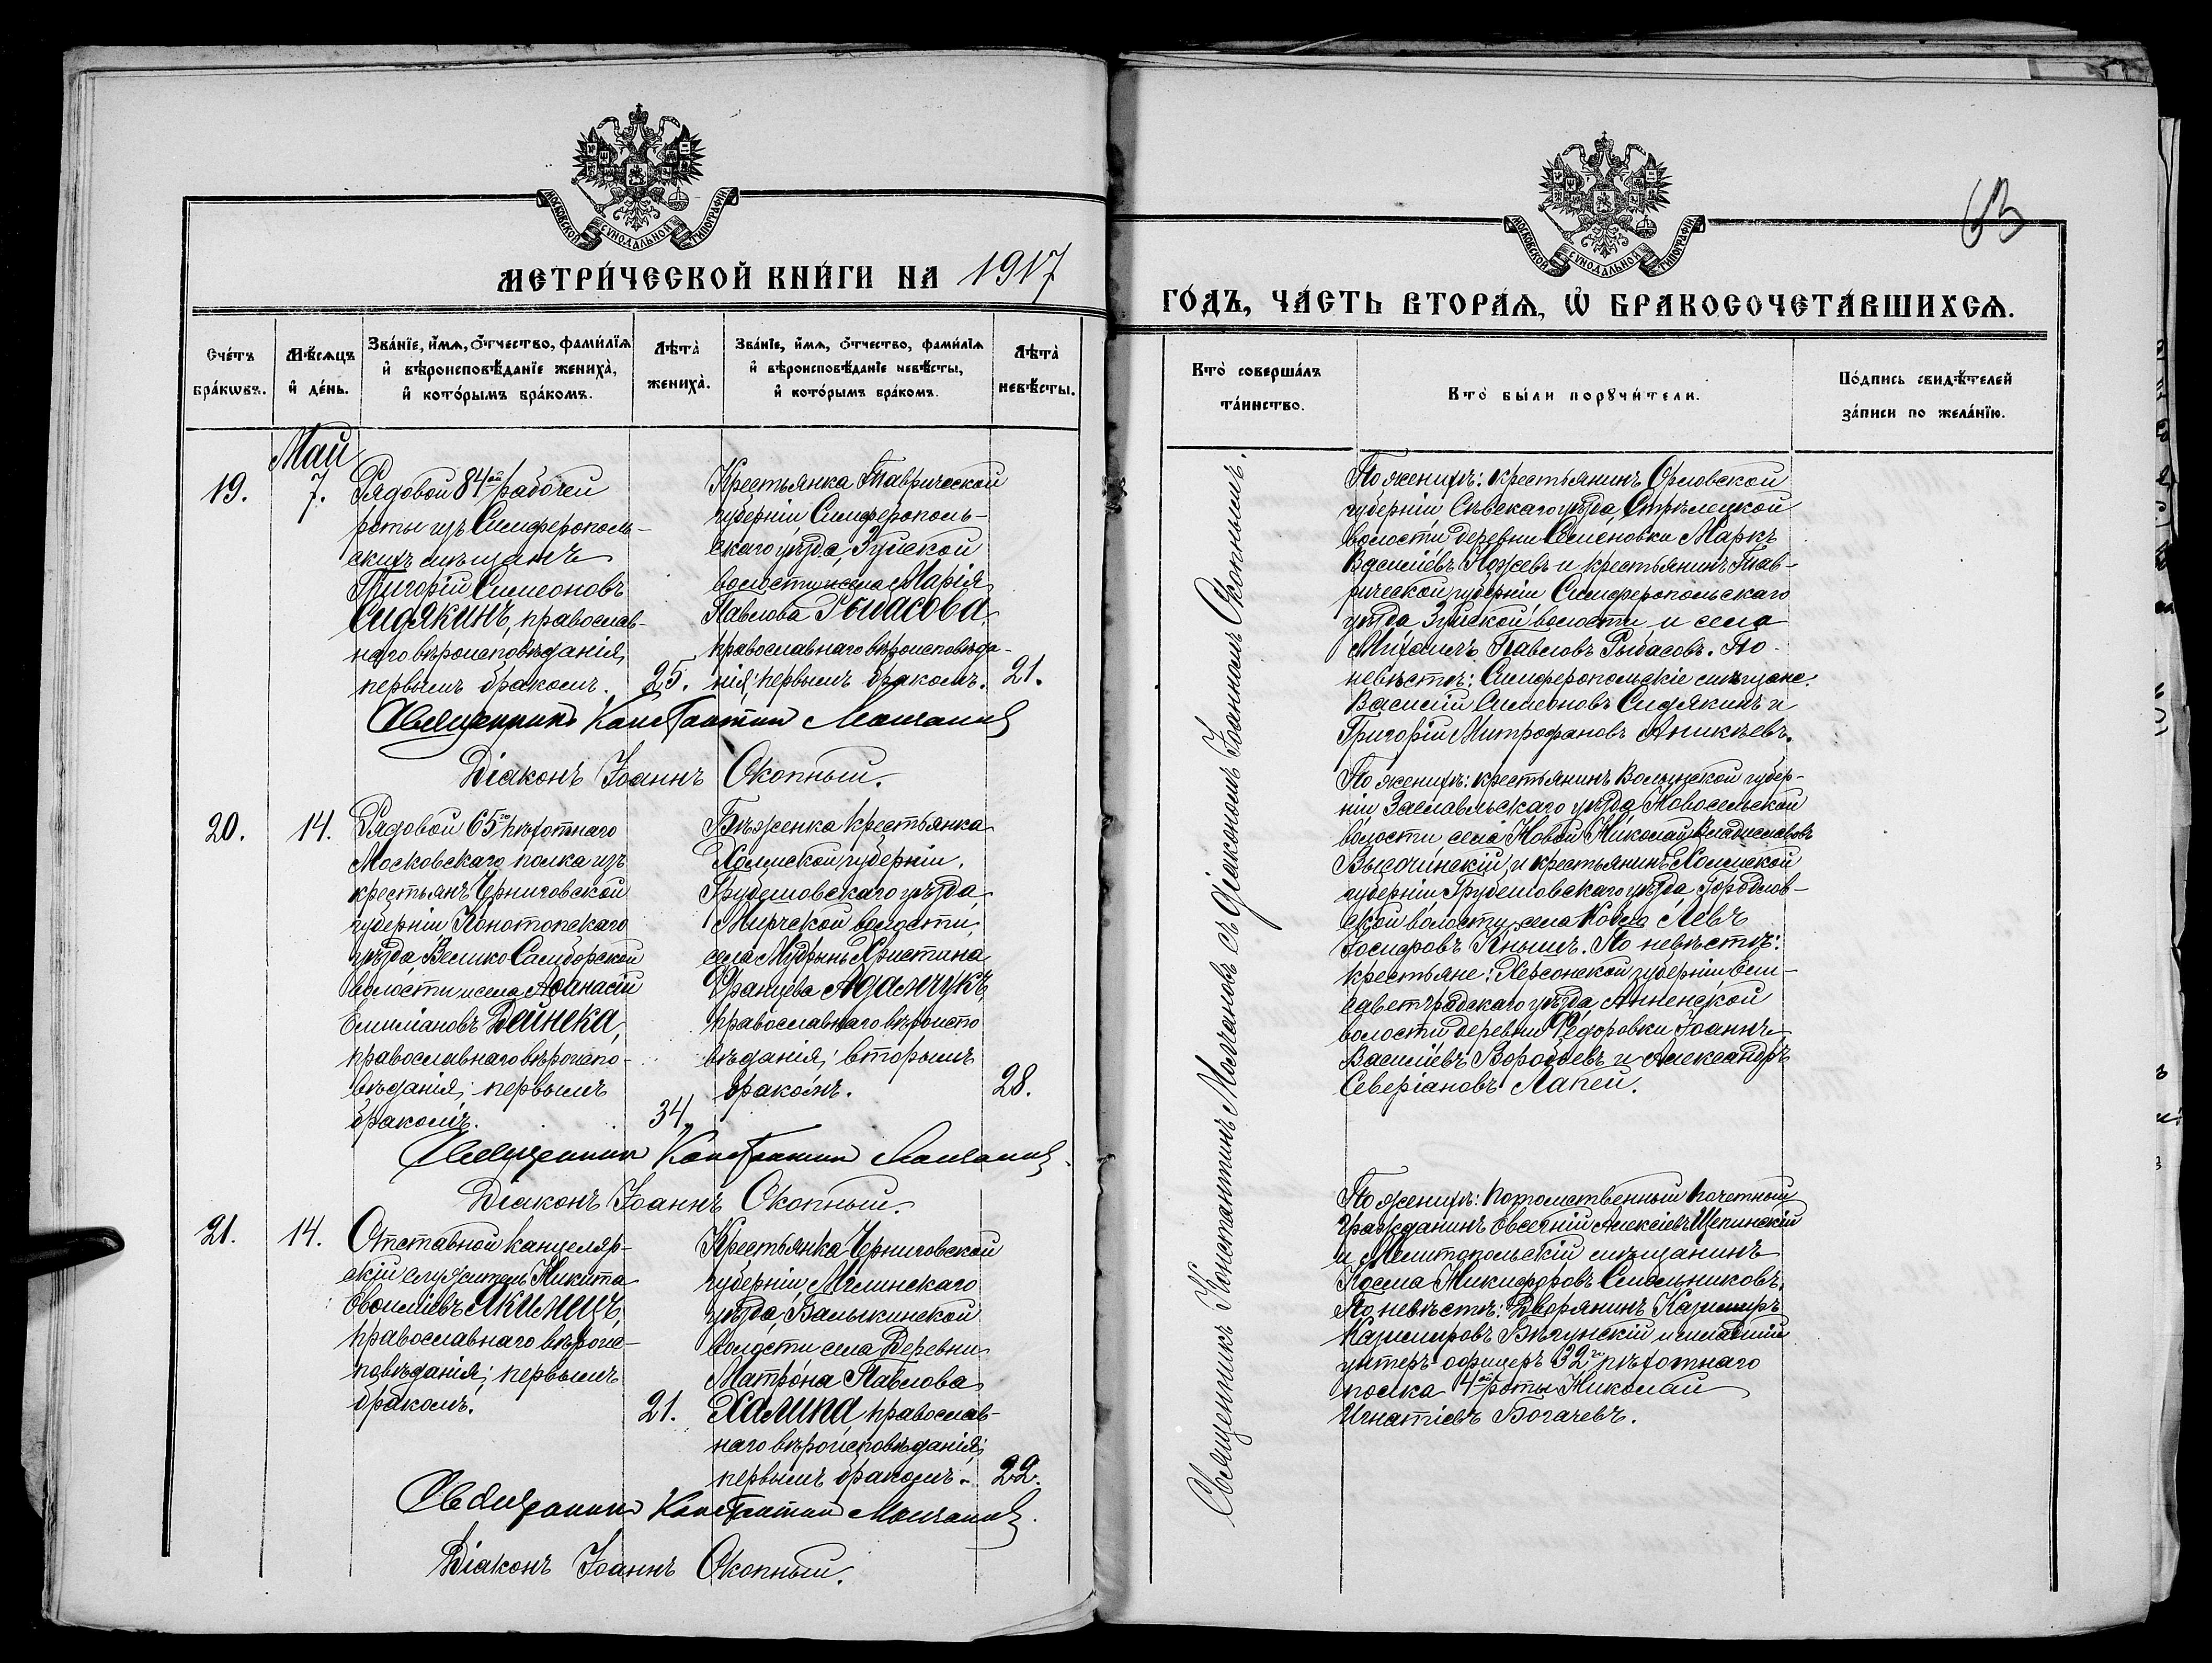 МОСКОВСКОЙ СѴНОДАЛЬНОЙ ТИПОГРАФІИ
МЕТРИ́ЧЕСКОЙ КНИ́ГИ НА 1917
Сче́тъ бра́кѡвъ.
Мѣ́сяцъ и҆ де́нь.
Зва́нїе, и҆́мѧ, ѻ҆́тчество, фами́лїѧ
и҆ вѣроисповѣ́данїе жениха̀,
и҆ кото́рымъ бра́комъ.
Лѣта̀ жениха̀.
Зва́нїе, и҆́мѧ, ѻ҆́тчество, фами́лїѧ
и҆ вѣроисповѣ́данїе невѣ́сты,
и҆ кото́рымъ бра́комъ.
Лѣта̀ невѣ́сты.
Май
19.
7.
Рядовой 84ой рабочей
роты изъ Симферополь-
скихъ мѣщанъ
Григорій Симеоновъ
Сидякинъ, православ-
наго вѣроисповѣданія,
первымъ бракомъ.
25.
Крестьянка Таврической
губерніи Симферополь-
скаго уѣзда, Зуйской
волости и села Марія
Павлова Рыбасова,
православнаго вѣроисповѣда-
нія; первымъ бракомъ.
21.
Священникъ Константинъ Молчановъ
Діаконъ Іоаннъ Окопный.
20.
14.
Рядовой 65го пѣхотнаго
Московскаго полка изъ
крестьянъ Черниговской
губерніи, Конотопскаго
уѣзда, Велико Самборской
волости и села Аѳанасій
Емиліановъ Дейнека,
православнаго вѣроиспо-
вѣданія; первымъ
бракомъ.
34.
Бѣженка крестьянка
Холмской губерніи,
Грубешовскаго уѣзда,
Мирчской волости,
села Мудрынь Христина
Францева Адамчукъ
православнаго вѣроиспо
вѣданія; вторымъ
бракомъ.
28.
Священникъ Константинъ Молчановъ.
Діаконъ Іоаннъ Окопный.
21.
14.
Отставной канцеляр-
скій служитель Никита
Якимецъ,
православнаго вѣроис-
повѣданія; первымъ
бракомъ.
21.
Крестьянка Черниговской
губерніи, Мглинскаго
уѣзда, Балыкинской
волости села Деревни
Матрона Павлова
Халипа, православ-
наго вѣроисповѣданія;
первымъ бракомъ.
22.
Священникъ Константинъ Молчановъ.
Діаконъ Іоаннъ Окопный.
МОСКОВСКОЙ СѴНОДАЛЬНОЙ ТИПОГРАФІИ
63
ГО́ДЪ, ЧА́СТЬ ВТОРА́Ѧ, Ѽ БРАКОСОЧЕТА́ВШИХСѦ.
Кто̀ соверша́лъ
та́инство.
Кто̀ бы́ли порꙋчи́тели.
По́дпись свидѣ́телей
за́писи по жела́нїю.
Священникъ Константинъ Молчановъ съ діакономъ Іоанномъ Окопнымъ.
По женихѣ: крестьянинъ Орловской
губерніи Сѣвскаго уѣзда, Стрѣлецкой
волости деревни Семеновки Маркъ
Василіевъ Ножевъ и крестьянинъ Тав-
рической губерніи Симферопольскаго
уѣзда Зуйской волости и села
Михаилъ Павловъ Рыбасовъ. По
невѣстѣ: Симферопольскіе мѣщане
Василій Симеоновъ Сидякинъ и
Григорій Митрофановъ Аникѣевъ.
По женихѣ: крестьянинъ Волынской губер-
ніи, Заславльскаго уѣзда, Новосельской
волости, села Новой Николай Владиславовъ
Высочинскій, и крестьянинъ Холмской
губерніи Грубешовскаго уѣзда, Городлов-
ской волости, села Левъ
Іосифовъ По невѣстѣ:
крестьяне: Херсонской губерніи Ели-
саветградскаго уѣзда, Анненской
волости деревни Ѳедоровки Іоаннъ
Василіевъ Воробьевъ и Александръ
Северіановъ Лапей.
По женихѣ: Потомственный почетный
гражданинъ Евсевій Алексіевъ Щепинскій
и Мелитопольскій мѣщанинъ
Косма Никифоровъ Смольниковъ.
По невѣстѣ: Дворянинъ Казимиръ
Казимировъ Вѣгунскій и младшій
унтеръ-офицеръ 32го пѣхотнаго
полка 4ой роты Николай
Игнатіевъ Богачевъ.